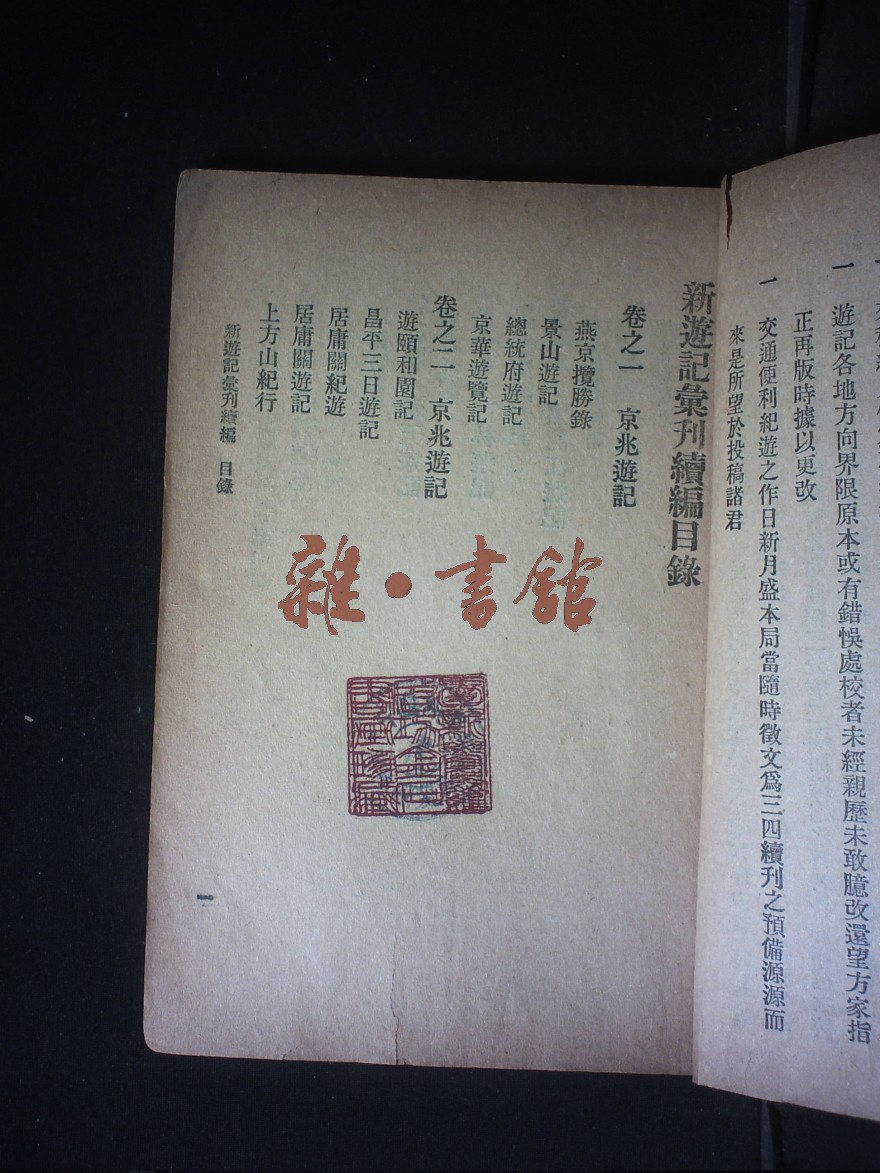 一　遊記各地方向界限原本或有錯悞處校者未經親歷未敢臆改還望方家指
正再版時據以更改
一　交通便利紀遊之作日新月盛本局當隨時徵文爲三四續刊之預備源源而
來是所望於投稿諸君
新遊記彙刊續編目錄
卷之一　京兆遊記
燕京攬勝錄
景山遊記
總統府遊記
京華遊覽記
卷之二　京兆遊記
遊頤和園記
昌平三日遊記
居庸關紀遊
居庸關遊記
上方山紀行
新遊記彙刊續編　目錄
一
雜·書館